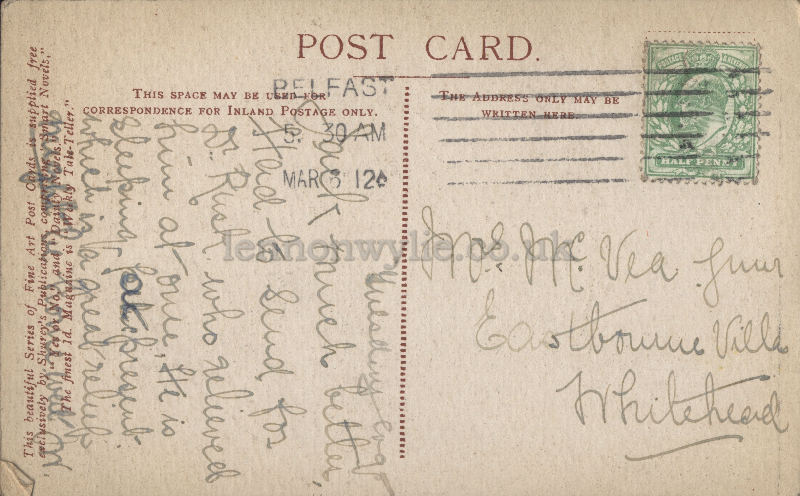 POST CARD.
THIS SPACE MAY BE USED FOR
CORRESPONDENCE FOR INLAND POSTAGE ONLY.
THE ADDRESS ONLY MAY BE
WRITTEN HERE.
BELFAST
5. 30 AM
MAR 6 12
HALF PENNY
This beautiful Series of Fine Art Post Cards is supplied free
exclusively by Shurey's Publications, comprising "Smart Novels,"
"Yes or No," and "Dainty Novels."
The finest 1d. Magazine is "Weekly Tale-Teller."
Tuesday
much better
Had to send for
Dr. Rusk who relieved
him at once. He is
sleeping at present
which is a great relief
Mrs. McVea
Eastbourne Villa
Whitehead
lennonwylie.co.uk